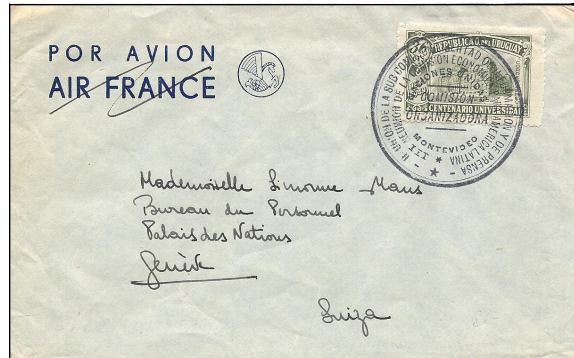 POR AVION
AIR FRANCE
REPUBLICA DEL URUGUAY
CENTENARIO UNIVERSIDAD
DE LA SUB
LIBERTAD
Y DE PRENSA
REUNION DE LA
AMERICA LATINA
NACIONES UNIDAS
COMISION
ORGANIZADORA
MONTEVIDEO
III
Mademoiselle Simonne Maus
Bureau du Personnel
Palais des Nations
Genève
Suiza